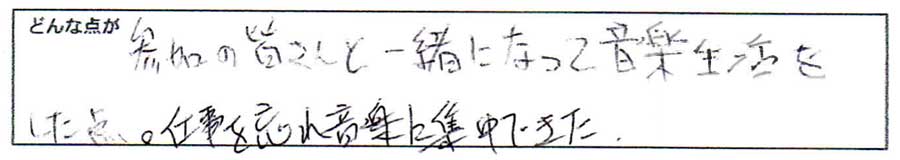 どんな点が
参加の皆さんと一緒になって音楽生活を
した点。仕事を忘れ音楽に集中できた.